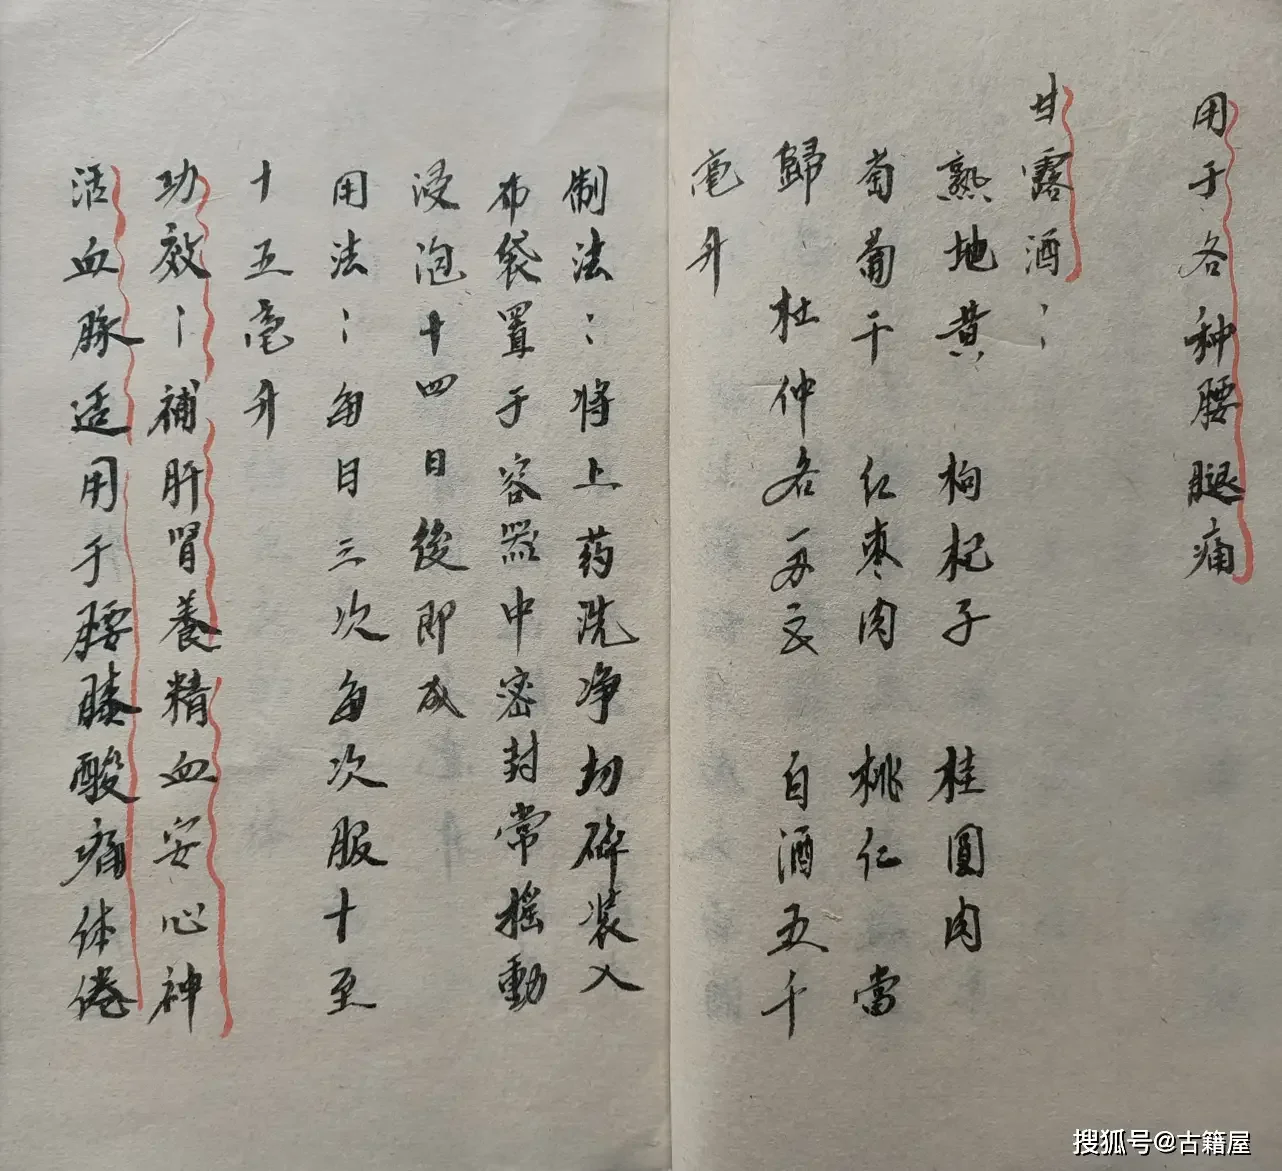 用于各种腰腿痛
甘露酒：
熟地黄 枸杞子 桂圓肉
萄葡干 红枣肉 桃仁 當
歸 杜仲各 白酒五千
毫升
制法：将上药洗净切碎装入
布袋置于容器中密封常摇動
浸泡十四日後即成
用法：每日三次每次服十至
十五毫升
功效：補肝腎養精血安心神
活血脉适用于腰膝酸痛体倦
搜狐号@古籍屋